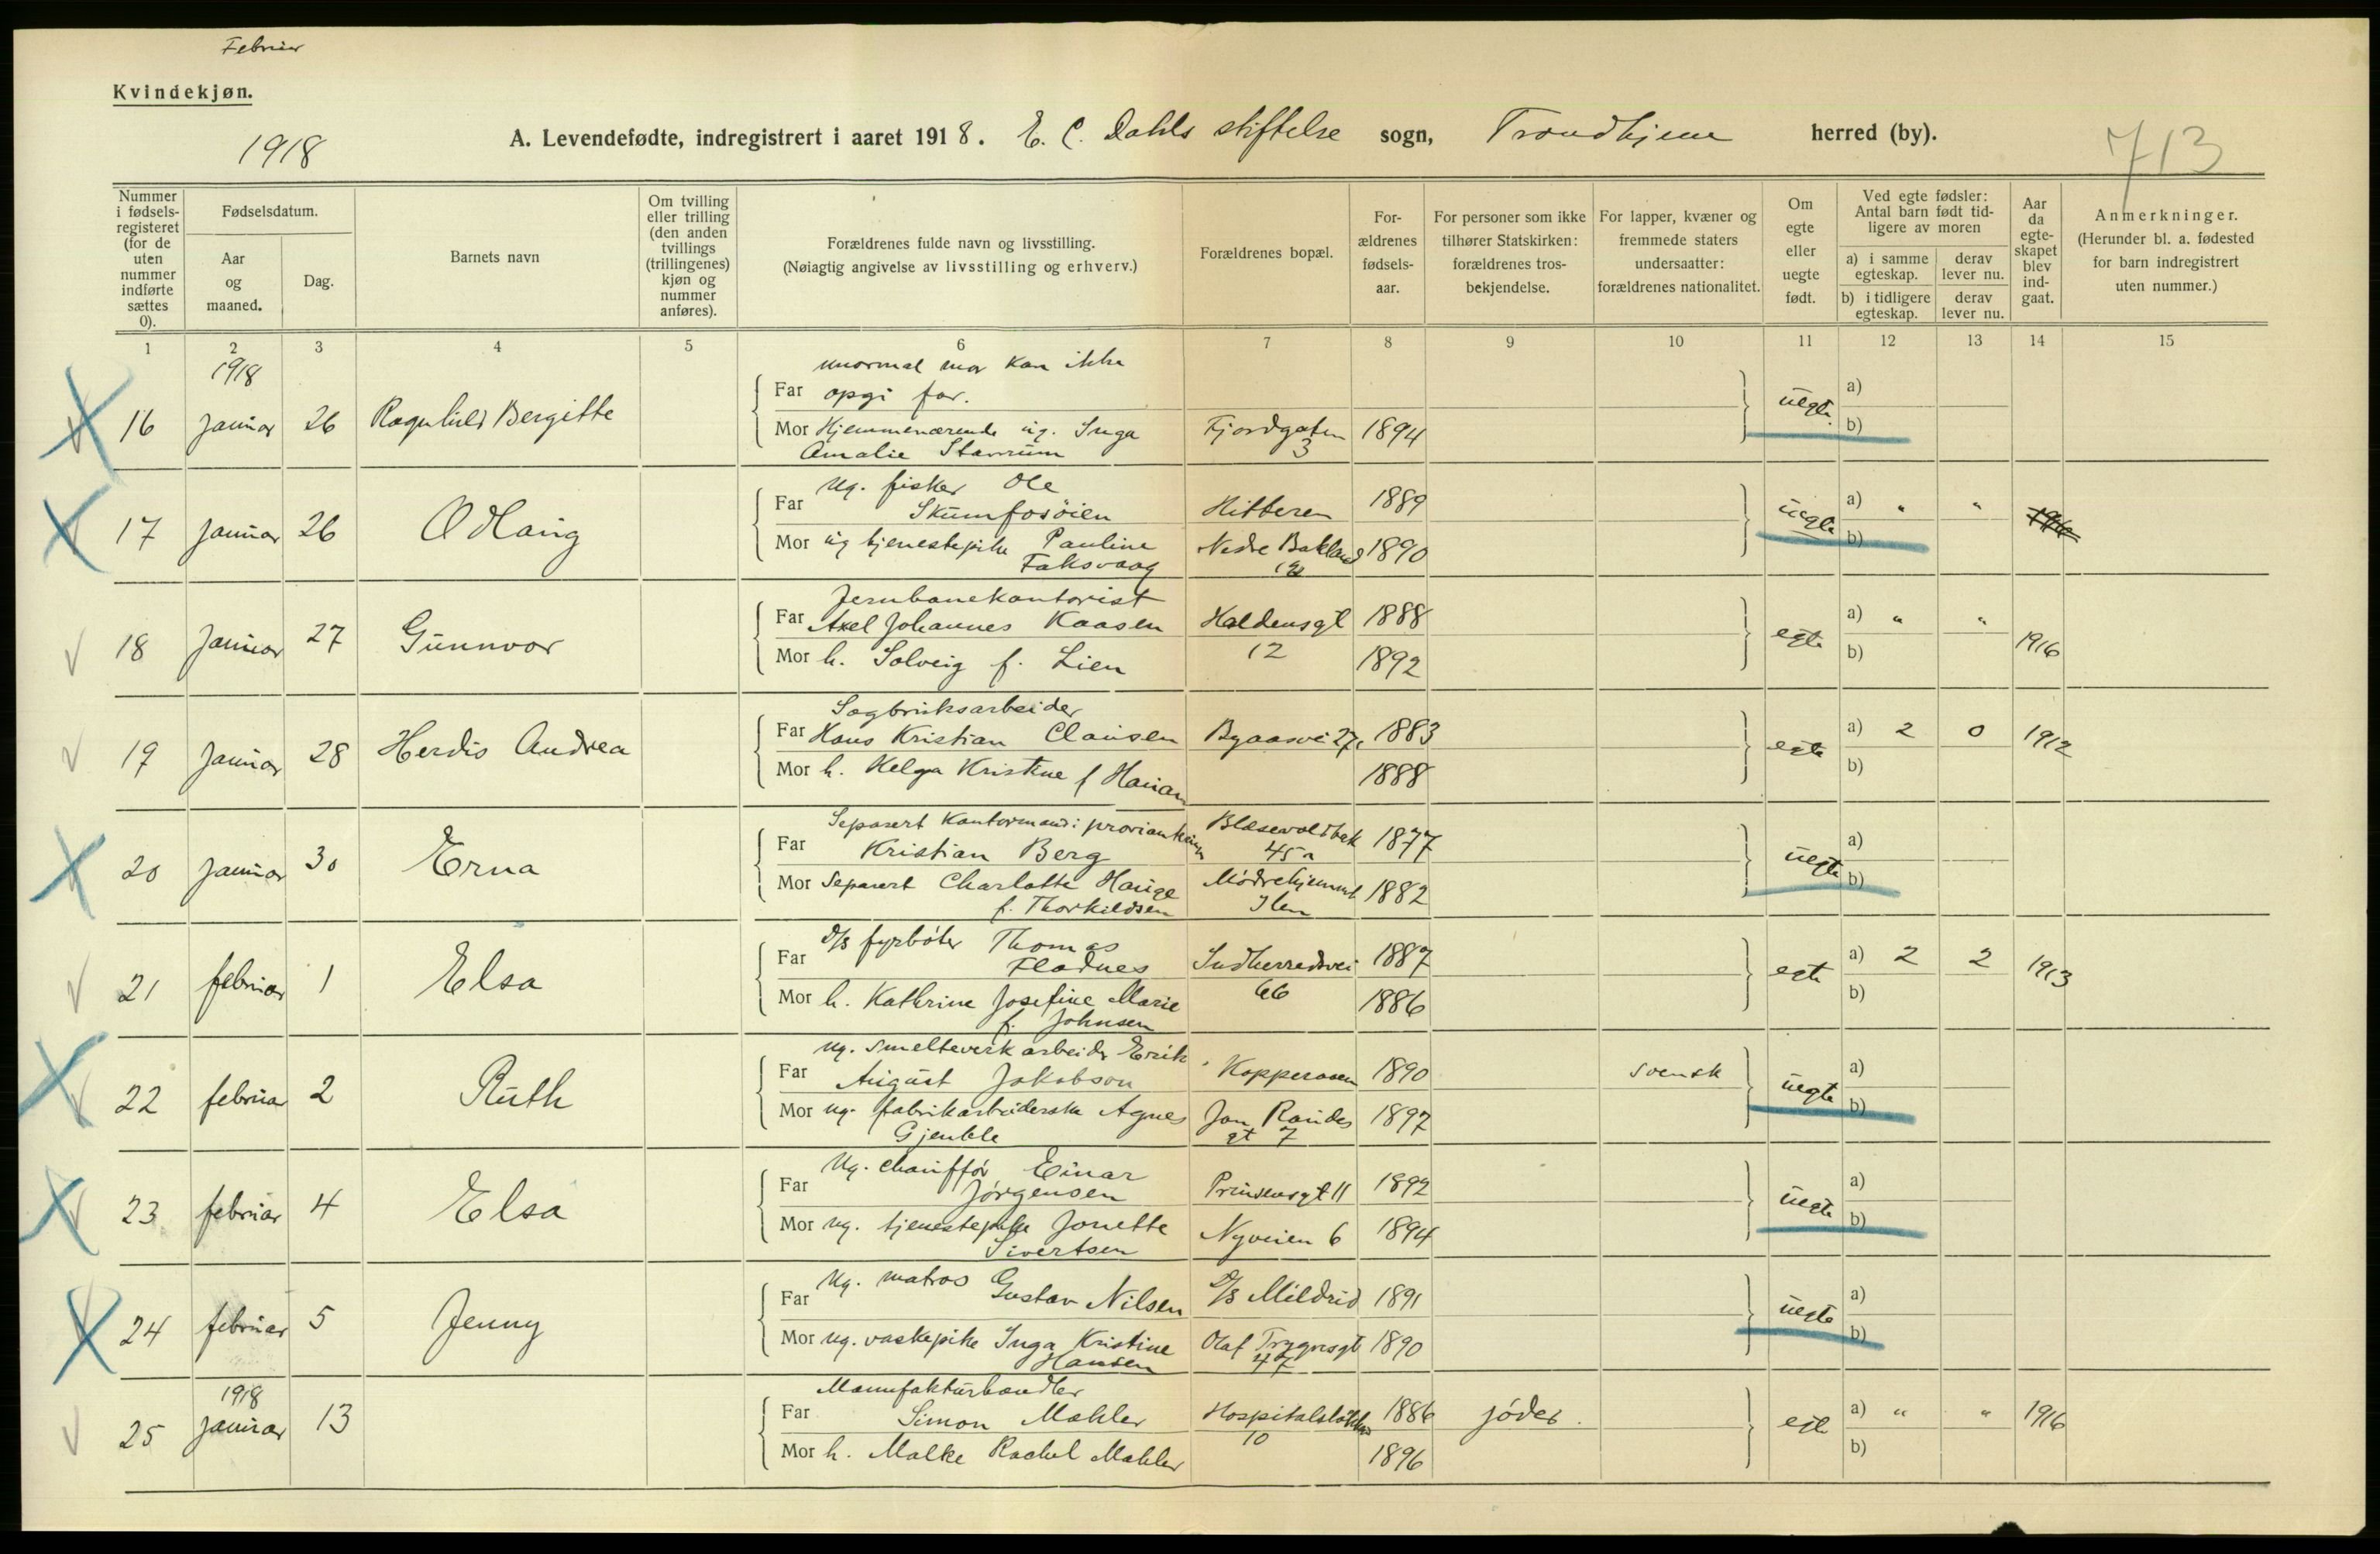 Februar
Kvindekjøn.
1918
A. Levendefødte, indregistrert i aaret 1918. E. C. Dahls stiftelse sogn, Trondhjem herred (by).
713
Nummer i fødsels-registeret (for de uten nummer indførte sættes 0).
Fødselsdatum.
Aar og maaned.
Dag.
Barnets navn
Om tvilling eller trilling (den anden tvillings (trillingenes) kjøn og nummer anføres).
Forældrenes fulde navn og livsstilling.
(Nøiagtig angivelse av livsstilling og erhverv.)
Forældrenes bopæl.
For-ældrenes fødsels-aar.
For personer som ikke tilhører Statskirken: forældrenes tros-bekjendelse.
For lapper, kvæner og fremmede staters undersaatter: forældrenes nationalitet.
Om egte eller uegte født.
Ved egte fødsler: Antal barn født tid-ligere av moren
a) i samme egteskap.
derav lever nu.
b) i tidligere egteskap.
derav lever nu.
Aar da egte-skapet blev ind-gaat.
Anmerkninger.
(Herunder bl. a. fødested for barn indregistrert uten nummer.)
1 2 3 4 5 6 7 8 9 10 11 12 13 14 15
1918
unormal mor kan ikke
Far opgi far.
16 januar 26 Ragnhild Bergitte uegte a) b)
Mor Hjemmeværende ug. Inga Fjordgaten 1894
Amalie Stavrum 3
Ug. fisker Ole
Far Skumfosöien Hitteren 1889
17 januar 26 Odlaug uegte a) " " b)
Mor ug tjenestepike Pauline Nedre Bakland 1890
Faksvaag
Jernbanekontorist
Far Axel Johannes Kaasen Haldensgt 1888
18 januar 27 Gunnvor egte a) " " b) 1916
Mor h. Solveig f. Lien 12 1892
Sagbruksarbeider
Far Hans Kristian Clausen Byaasvei 27c 1883
19 januar 28 Herdis Andrea egte a) 2 0 b) 1912
Mor h. Helga Kristine f 1888
Separert Kontormand i
Far Kristian Berg 45a 1877
20 januar 30 Erna uegte a) b)
Mor Separert Charlotte Hauge Mødrehjemmet 1882
f. Thorkildsen Ilen
d/s fyrbøter Thomas
Far Fladnes Indherredsvei 1887
21 februar 1 Elsa egte a) 2 2 b) 1913
Mor h. Kathrine Josefine Marie 66 1886
f. Johnsen
ug. smelteverk arbeider Erik
Far August Jakobson Kopperaaen 1890 svensk
22 februar 2 Ruth uegte a) b)
Mor ug. fabrikarbeiderske Agnes Jon Raudes 1897
gt 7
Ug. chauffør Einar
Far Jørgensen Prinsensgt 11 1892
23 februar 4 Elsa uegte a) b)
Mor ug. tjenestepike Jonette Nyveien 6 1894
Sivertsen
Ug. matros Gustav Nilsen
Far D/S Mildrid 1891
24 februar 5 Jenny uegte a) b)
Mor ug. vaskepike Inga Kristine Olaf Trygvesgt 1890
Hansen 47
1918
Manufakturhandler
Far Simon Mahler 1886 jøder.
25 januar 13 egte a) " " b) 1916
Mor h. Malke Rachel Mahler 10 1896